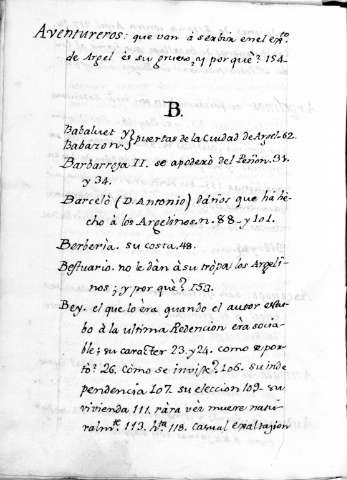 Aventureros: que van à serbir en el exto.
de Argel ès su grueso, y por què? 154.
B.
Babaluet y
Babazon } puertas de la Ciudad de Argel. 62.
Barbarroja II. se apoderò del Peñon. 33.
y 34.
Barcelò (D. Antonio) daños que hà he-
cho à los Argelinos. n. 88. y 101.
Berberìa. su costa. 48.
Bestuario. no le dàn à su tròpa los Argeli-
nos; y por què? 153.
Bey. el que lo èra quando el autor estu-
bo à la ultima Redencion èra socia-
ble; su caracter 23. y 24. como se por-
tò? 26. Còmo se inviste? 106. su inde
pendencia 107. su eleccion 109. su
vivienda 111. ràra vèz muere natu-
ralmte. 113. hta. 118. casual exaltazion